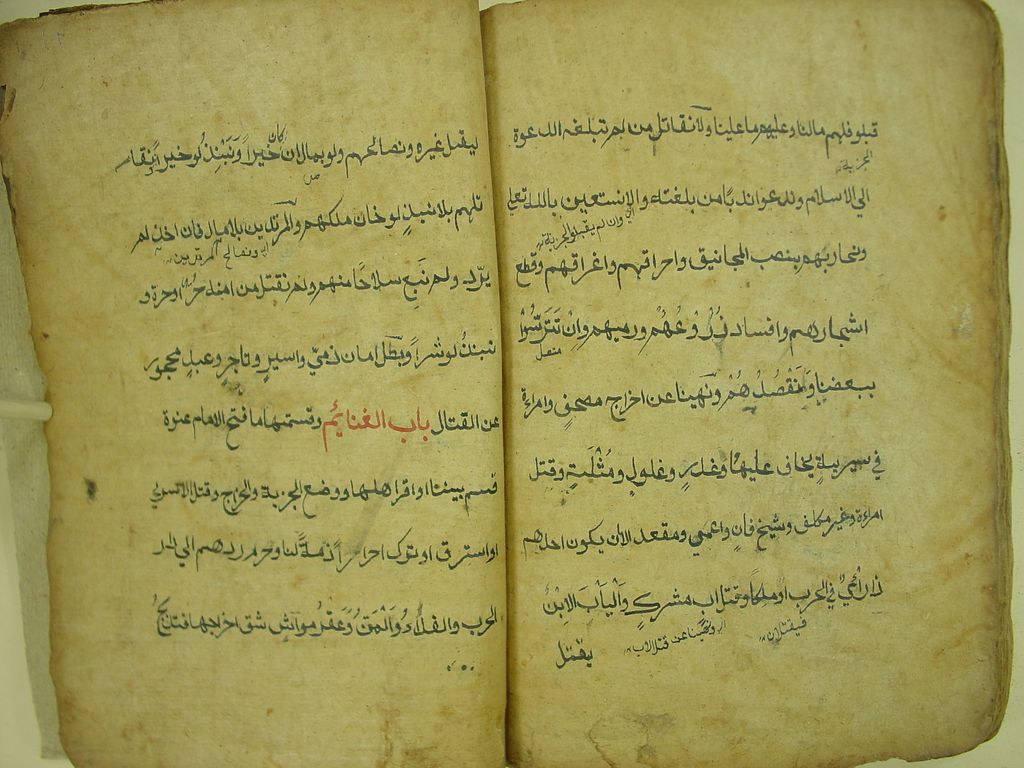 قبلو فلهم مالنا وعليهم ما علينا ولا نقاتل من لم تبلغه الدعوة
الجزية
الي الاسلام وندعوا ندبًا من بلغته والا نستعين بالله تعلي
اي وان لم يقبلو الجزية
ونحاربهم بنصب المجانيق واحراقهم واغراقهم وقطع
اشجارهم وافساد زُرُوعُهُم ورميهم وانْ تَتَرَّسُوْا
ببعضنا وَنَقْصُدُهُمْ ونُهينا عن اخراج مصحفٍ وامراءة
في سريةٍ يخاف عليها وغدرٍ وغلولٍ ومُثْلَةٍ وقتل
امراءة وغير مكلف وشيخ فانٍ واعمي ومقعد الا ان يكون احدهم
ذا رأيٍ في الحرب او ملكا وقتل اب مشركٍ وَالْيَأبَ الابنُ
فيقتلان
اي ونُهينا عن قتل الاب
يقتل
ليقتل غيره ونصالحهم ولو بمال ان خيراً ونَنبِذ لو خيراً ونقا
كان
تلهم بلا نبذٍ لو خان ملكهم والمرتدين بلا مال فان اخذ لم
اي ونصالح المرتدين
يردّ ولم نَبِع سلاحًا منهم ولم نقتل من امنه حرٌ او حرة و
ننبذُ لو شراً وبَطَل امان ذميٍّ واسيرٍ وتاجرٍ وعبدٍ محجور
عن القتال باب الغنائم وقسمتها ما فتح الامام عنوة
قسم بيننا او اقر اهلها ووضع الجزية والخراج وقتل الاسري
او استرق او ترك احراراً ذمةً لنا وحرم ردهم الي دار
الحرب والفداءُ وَالْمَنُّ وَعَقْرُ مواشٍ شق اخراجها فتذبحُ